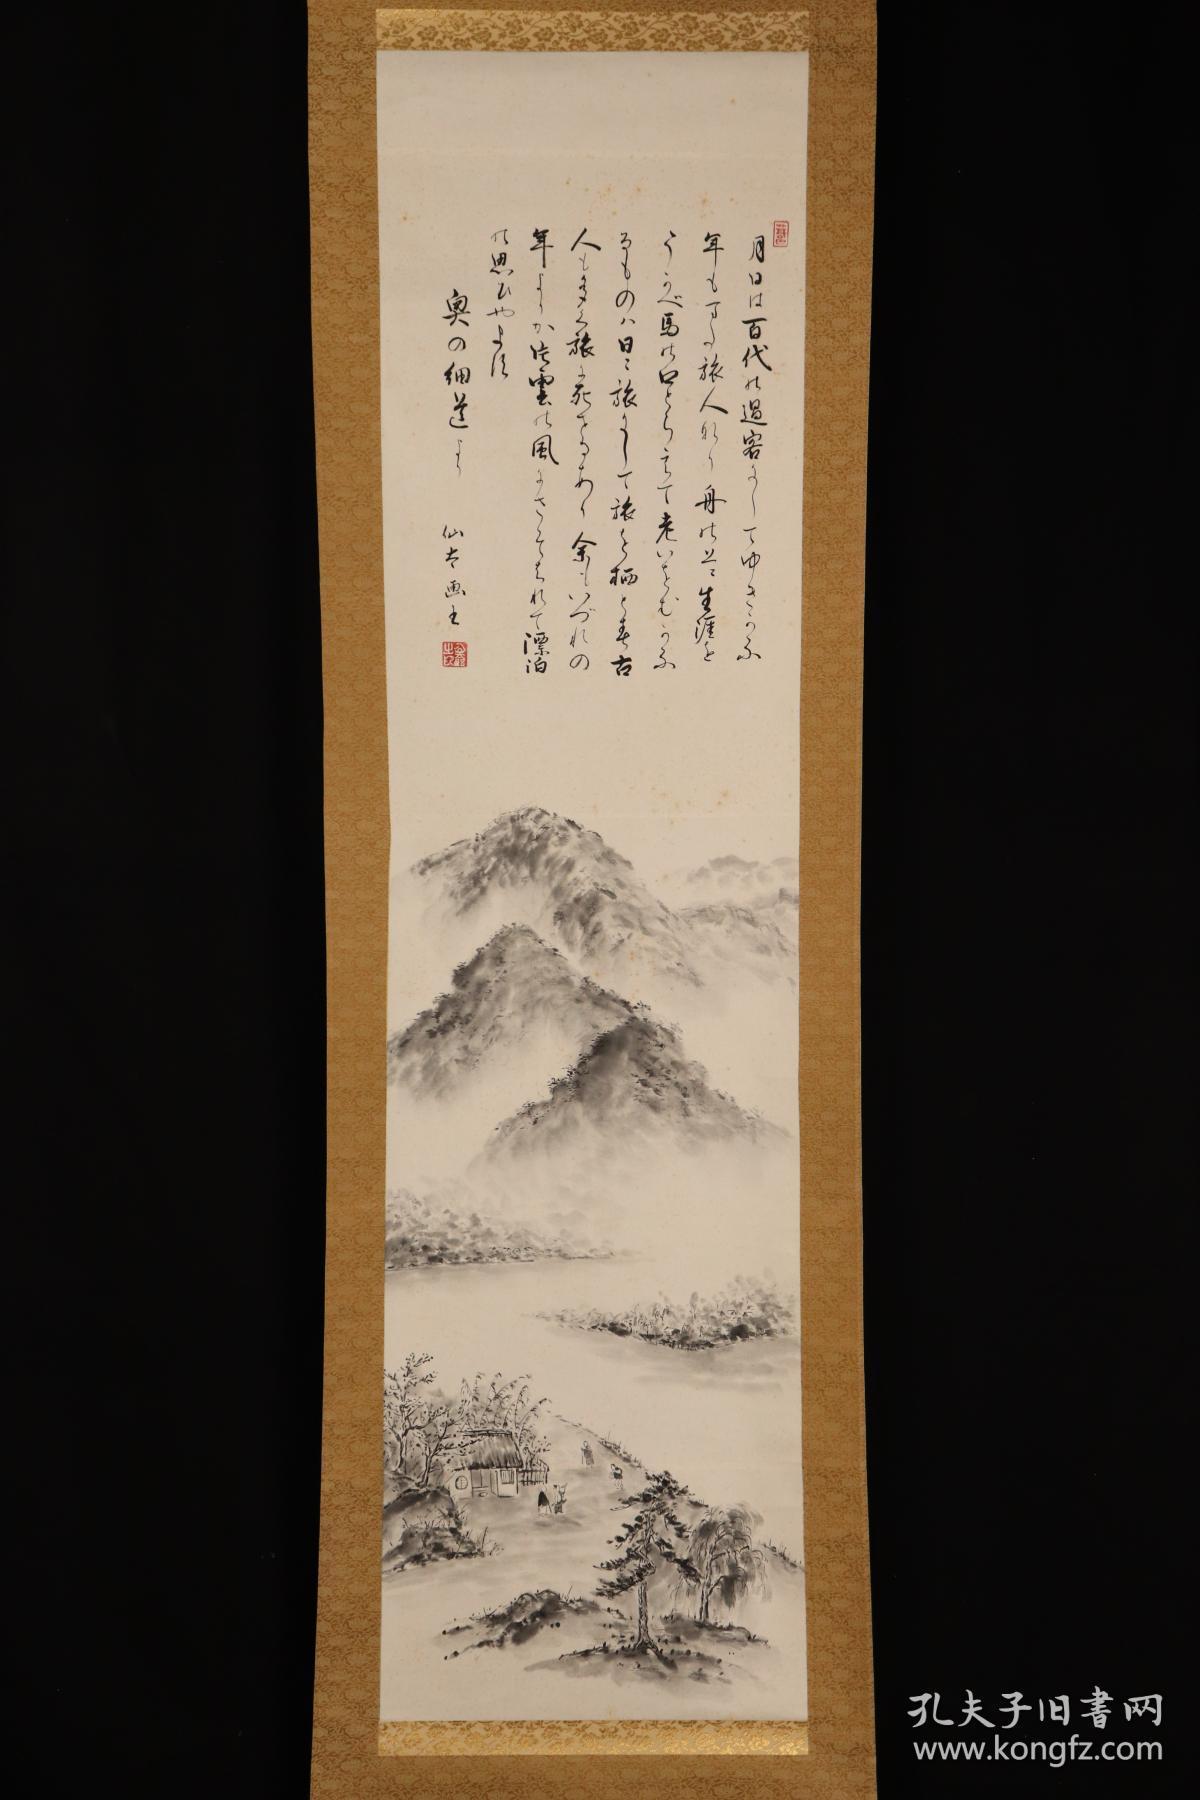 月日は百代の過客にしてゆきかふ
年もまた旅人なり舟の上に生涯を
うかべ馬の口とらえて老いをむかふ
るものハ日ミ旅にして旅を栖とす古
人も多く旅に死せるあり余もいづれの
年よりか片雲の風にさそはれて漂泊
の思ひやまず
奥の細道より
仙
画
孔夫子旧书网
www.kongfz.com